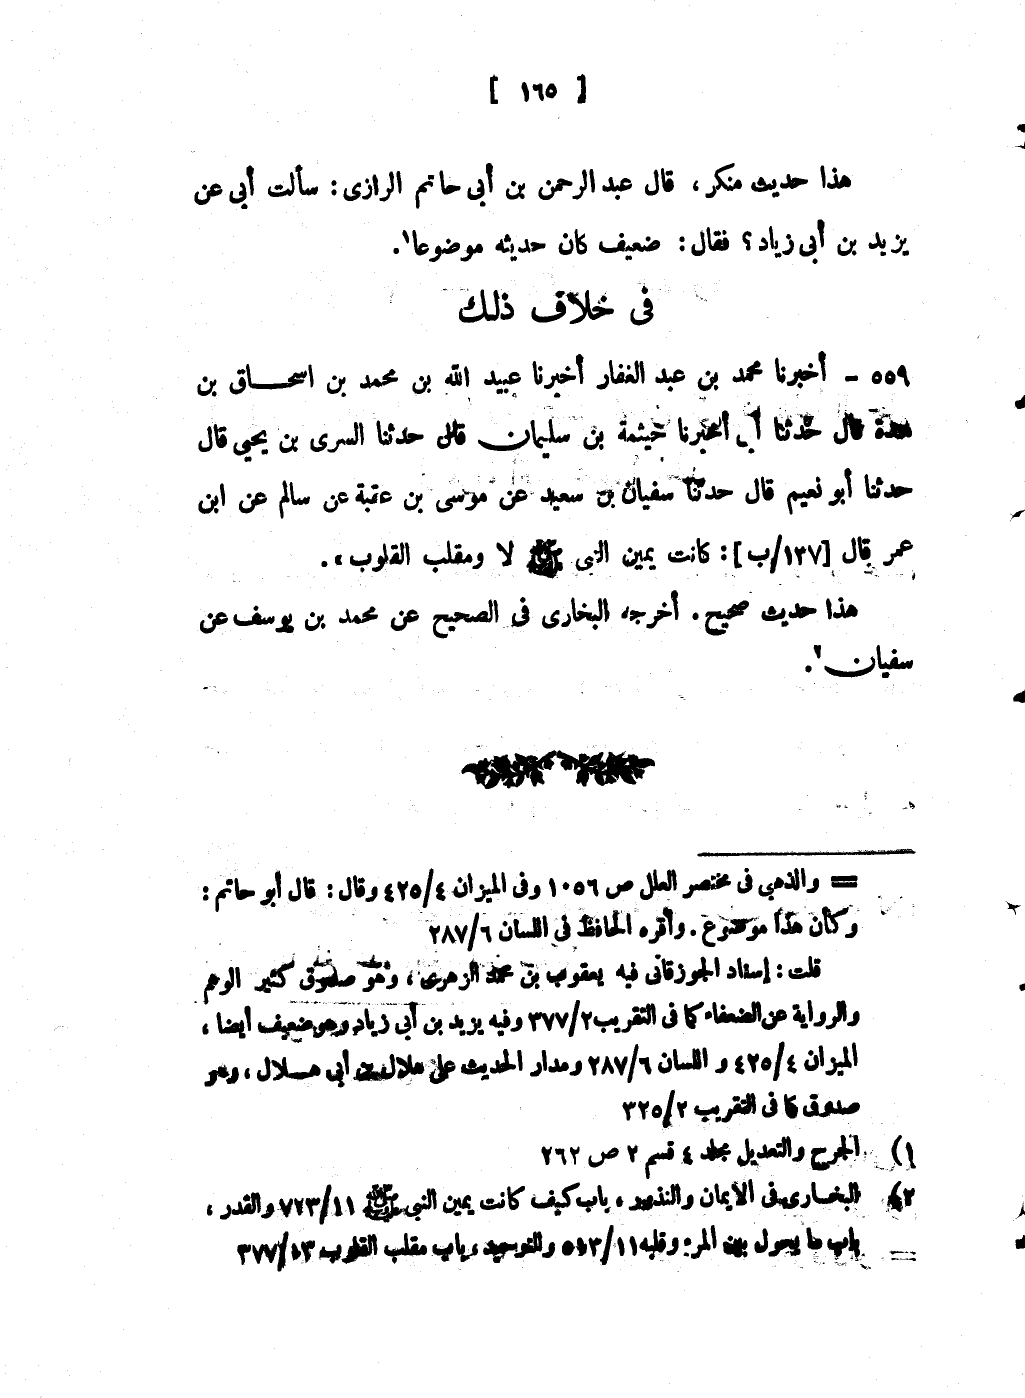 [ ١٦٥ ]
هذا حديث منكر ، قال عبد الرحمن بن أبى حاتم الرازى : سألت أبى عن
يزيد بن أبى زياد ؟ فقال : ضعيف كان حديثه موضوعا١.
فى خلاف ذلك
٥٥٩ - أخبرنا محمد بن عبد الغفار أخبرنا عبيد الله بن محمد بن اسحاق بن
قال حدثنا أبى أخبرنا خيثمة بن سليمان قال حدثنا السرى بن يحيى قال
حدثنا أبو نعيم قال حدثنا سفيان بن سعيد عن موسى بن عقبة عن سالم عن ابن
عمر قال [١٣٧/ب] : كانت يمين النبى ﷺ لا ومقلب القلوب ، .
هذا حديث صحيح . أخرجه البخارى فى الصحيح عن محمد بن يوسف عن
سفيان٢.
= والذهبى فى مختصر العلل ص ١٠٥٦ وفى الميزان ٤٢٥/٤ وقال : قال أبو حاتم :
وكأن هذا موضوع . وأقره الحافظ فى اللسان ٢٨٧/٦
قلت : إسناد الجوزقانى فيه يعقوب بن محمد الزهرى ، وهو صدوق كثير الوهم
والرواية عن الضعفاء كما فى التقريب ٣٧٧/٢ وفيه يزيد بن أبى زياد وهو ضعيف أيضا ،
الميزان ٤٢٥/٤ و اللسان ٢٨٧/٦ ومدار الحديث على هلال بن أبى هلال ، وهو
صدوق كما فى التقريب ٣٢٥/٢
١) الجرح والتعديل مجلد ٤ قسم ٢ ص ٢٦٢
٢) البخارى فى الأيمان والنذور ، باب كيف كانت يمين النبى ﷺ ٧٢٣/١١ والقدر ،
باب ما يحول بين المرء وقلبه ٥١٣/١١ والتوحيد ، باب مقلب القلوب ٣٧٧/١٣
=